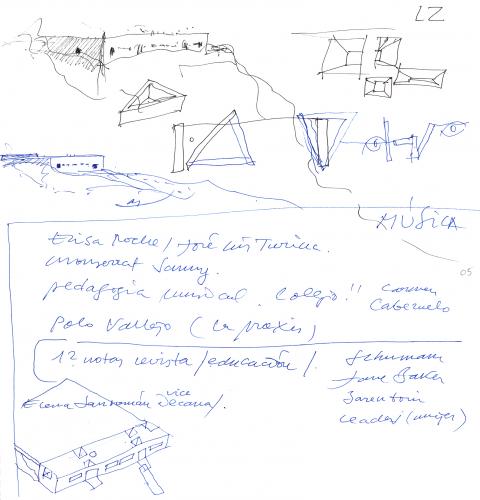 LZ
MÚSICA
05
Elisa Roche / José Luis Turina.
Monserrat Sanuy.
pedagogía musical. Colegio!! Carmen Caberuelo
Polo Vallejo (la praxis)
12 notas revista / educación /.
Schumann
Jane Baker
Barenboim
Leader (mujer)
Elena Sanromán vice Decana /.